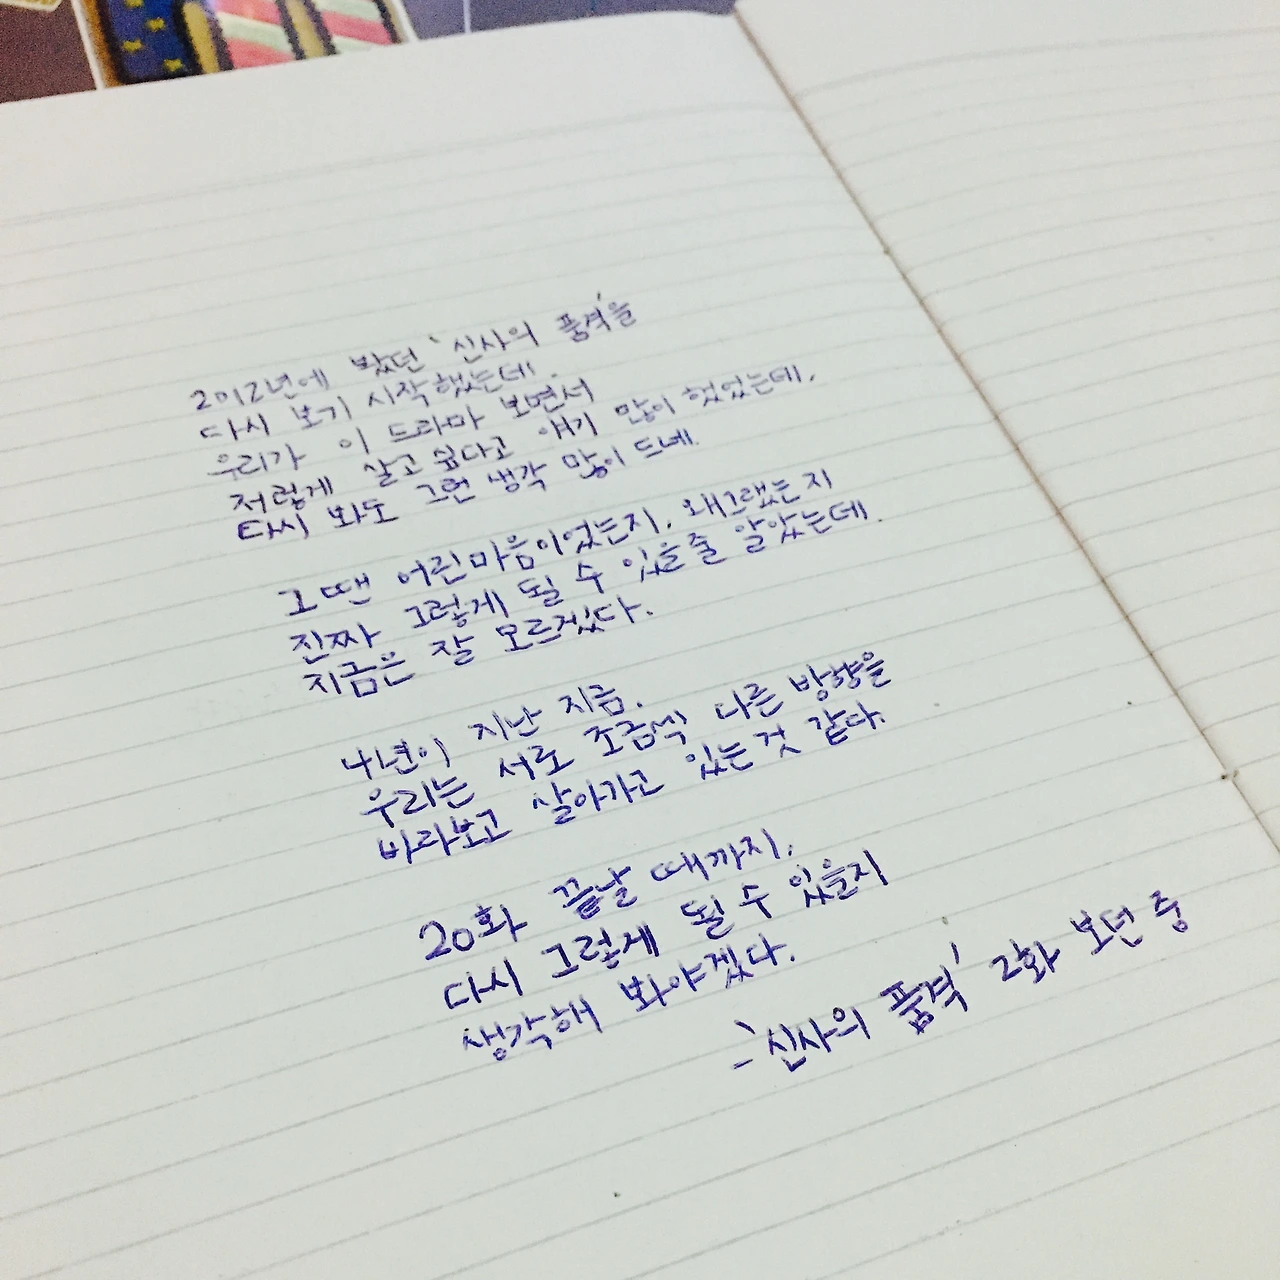 2012년에 봤던 '신사의 품격'을
다시 보기 시작했는데.
우리가 이 드라마 보면서
저렇게 살고 싶다고 얘기 많이 했었는데,
다시 봐도 그런 생각 많이 드네.
그땐 어린마음이었는지, 왜그랬는지
진짜 그렇게 될 수 있을줄 알았는데.
지금은 잘 모르겠다.
4년이 지난 지금.
우리는 서로 조금씩 다른 방향을
바라보고 살아가고 있는것 같다.
20화 끝날 때까지,
다시 그렇게 될 수 있을지
생각해 봐야겠다.
- '신사의 품격' 2화 보던 중